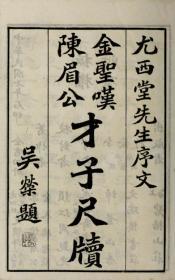 尤西堂先生序文
金聖嘆
陳眉公
才子尺牘
吳縈題